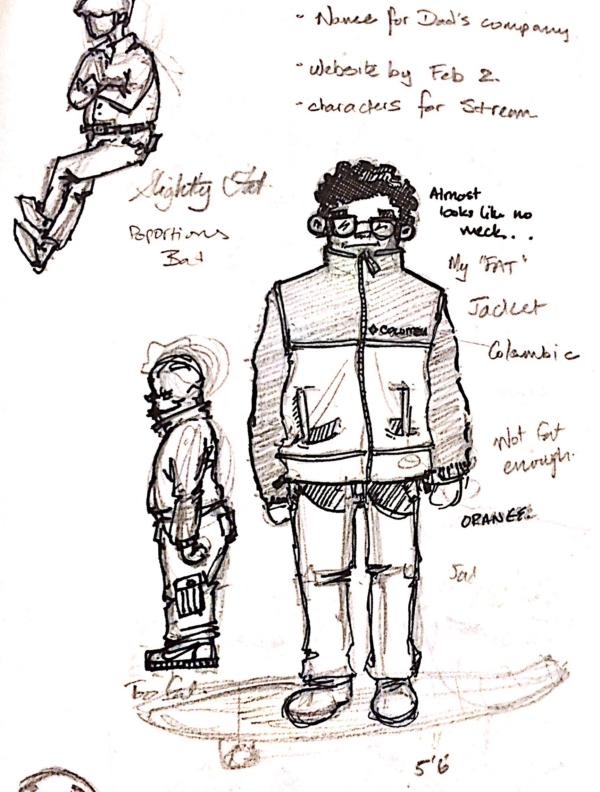 - Names for Dad's company
- website by Feb 2.
- characters for Stream
Slightly Fat.
Poportions
Bad
Almost
looks like no
neck...
My "FAT"
Jacket
COLUMBIA
Columbia
Not fat
enough.
ORANGE.
Too Fat
5'6